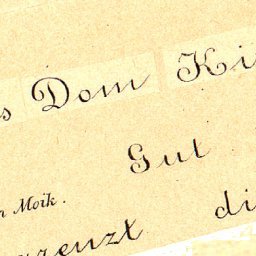 s Dom Ki
Gut
n Moik.
grenzt di